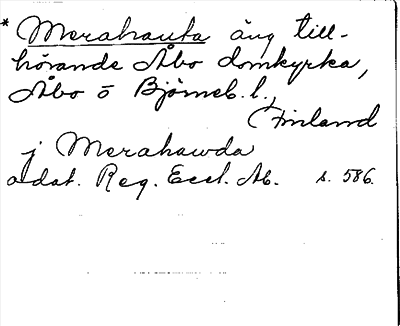 * Merahauta äng till-
hörande Åbo domkyrka,
Åbo o Björneb. l.,
Finland
j Merahawda
odat. Reg. Eccl. Ab. s. 586.